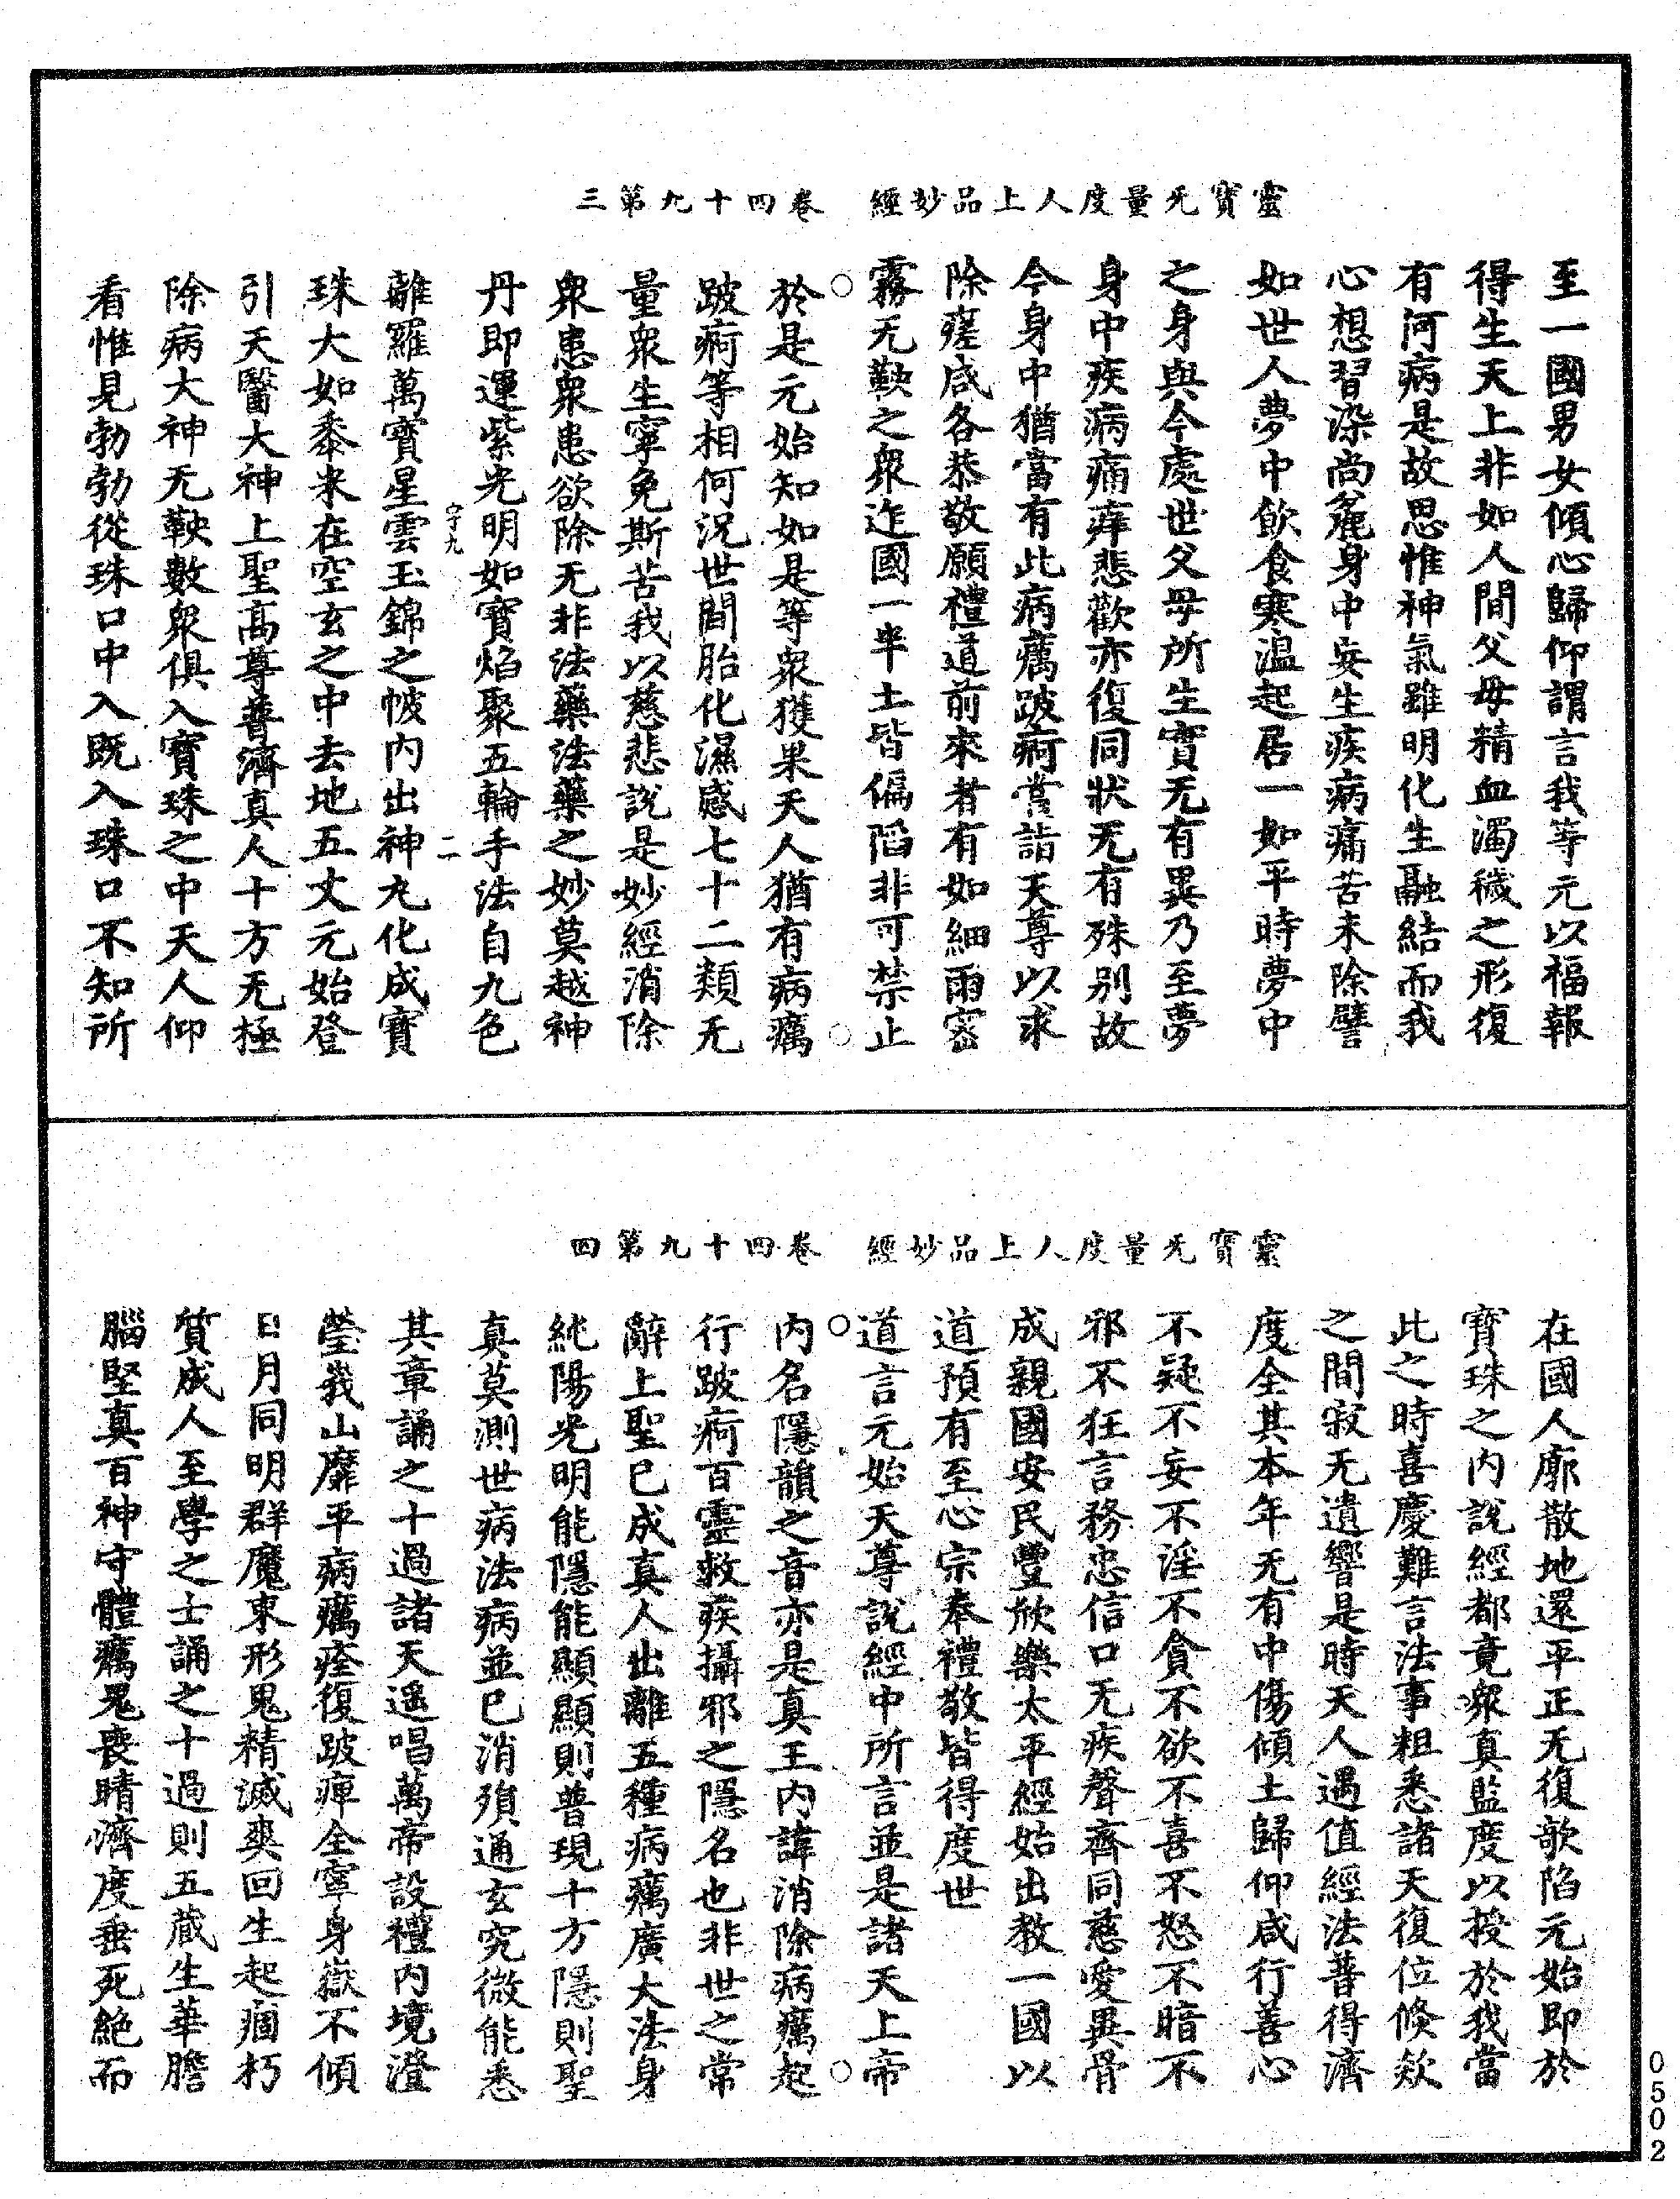 靈寳无量度人上品妙經　卷四十九第三
至一國男女傾心歸仰謂言我等元以福報
得生天上非如人間父母精血濁穢之形復
有何病是故思惟神氣雖明化生融結而我
心想習染尚麄身中妄生疾病痛苦未除譬
如世人夢中飲食寒温起居一如平時夢中
之身與今處世父母所生實无有異乃至夢
身中疾病痛痒悲歡亦復同狀无有殊别故
今身中猶當有此病癘跛痾當詣天尊以求
除瘥咸各恭敬願禮道前來者有如細雨密
霧无鞅之衆迮國一半土皆偏陷非可禁止
於是元始知如是等衆獲果天人猶有病癘
跛痾等相何況世間胎化濕感七十二類无
量衆生寧免斯苦我以慈悲說是妙經消除
衆患衆患欲除无非法藥法藥之妙莫越神
丹即運紫光明如寳焰聚五輪手法自九色
離羅萬寳星雲玉錦之帔内出神丸化成寳
珠大如黍米在空玄之中去地五丈元始登
引天醫大神上聖高尊普濟真人十方无極
除病大神无鞅數衆俱入寳珠之中天人仰
看惟見勃勃從珠口中入既入珠口不知所
靈寳无量度人上品妙經　卷四十九第四
在國人廓散地還平正无復欹陷元始即於
寳珠之内說經都竟衆真監度以授於我當
此之時喜慶難言法事粗悉諸天復位倏欻
之間寂无遺響是時天人遇值經法普得濟
度全其本年无有中傷傾土歸仰咸行善心
不疑不妄不淫不貪不欲不喜不怒不暗不
邪不狂言務忠信口无疾聲齊同慈愛異骨
成親國安民豐欣樂太平經始出教一國以
道預有至心宗奉禮敬皆得度世
道言元始天尊說經中所言並是諸天上帝
内名隱韻之音亦是真王内諱消除病癘起
行跛痾百靈救疾攝邪之隱名也非世之常
辭上聖已成真人出離五種病癘廣大法身
純陽光明能隱能顯顯則普現十方隱則聖
真莫測世病法病並已消殞通玄究微能悉
其章誦之十過諸天遥唱萬帝設禮内境澄
瑩峩山靡平病癘痊復跛痺全寧身嶽不傾
日月同明群魔束形鬼精滅爽回生起痼朽
質成人至學之士誦之十過則五藏生華膽
腦堅真百神守體癘鬼喪睛濟度垂死絶而
0502